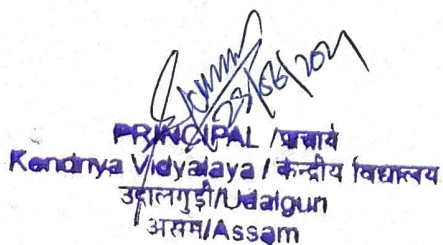 23/06/2021
PRINCIPAL / प्राचार्य
Kendriya Vidyalaya / केन्द्रीय विद्यालय
उदालगुड़ी/Udalguri
असम/Assam